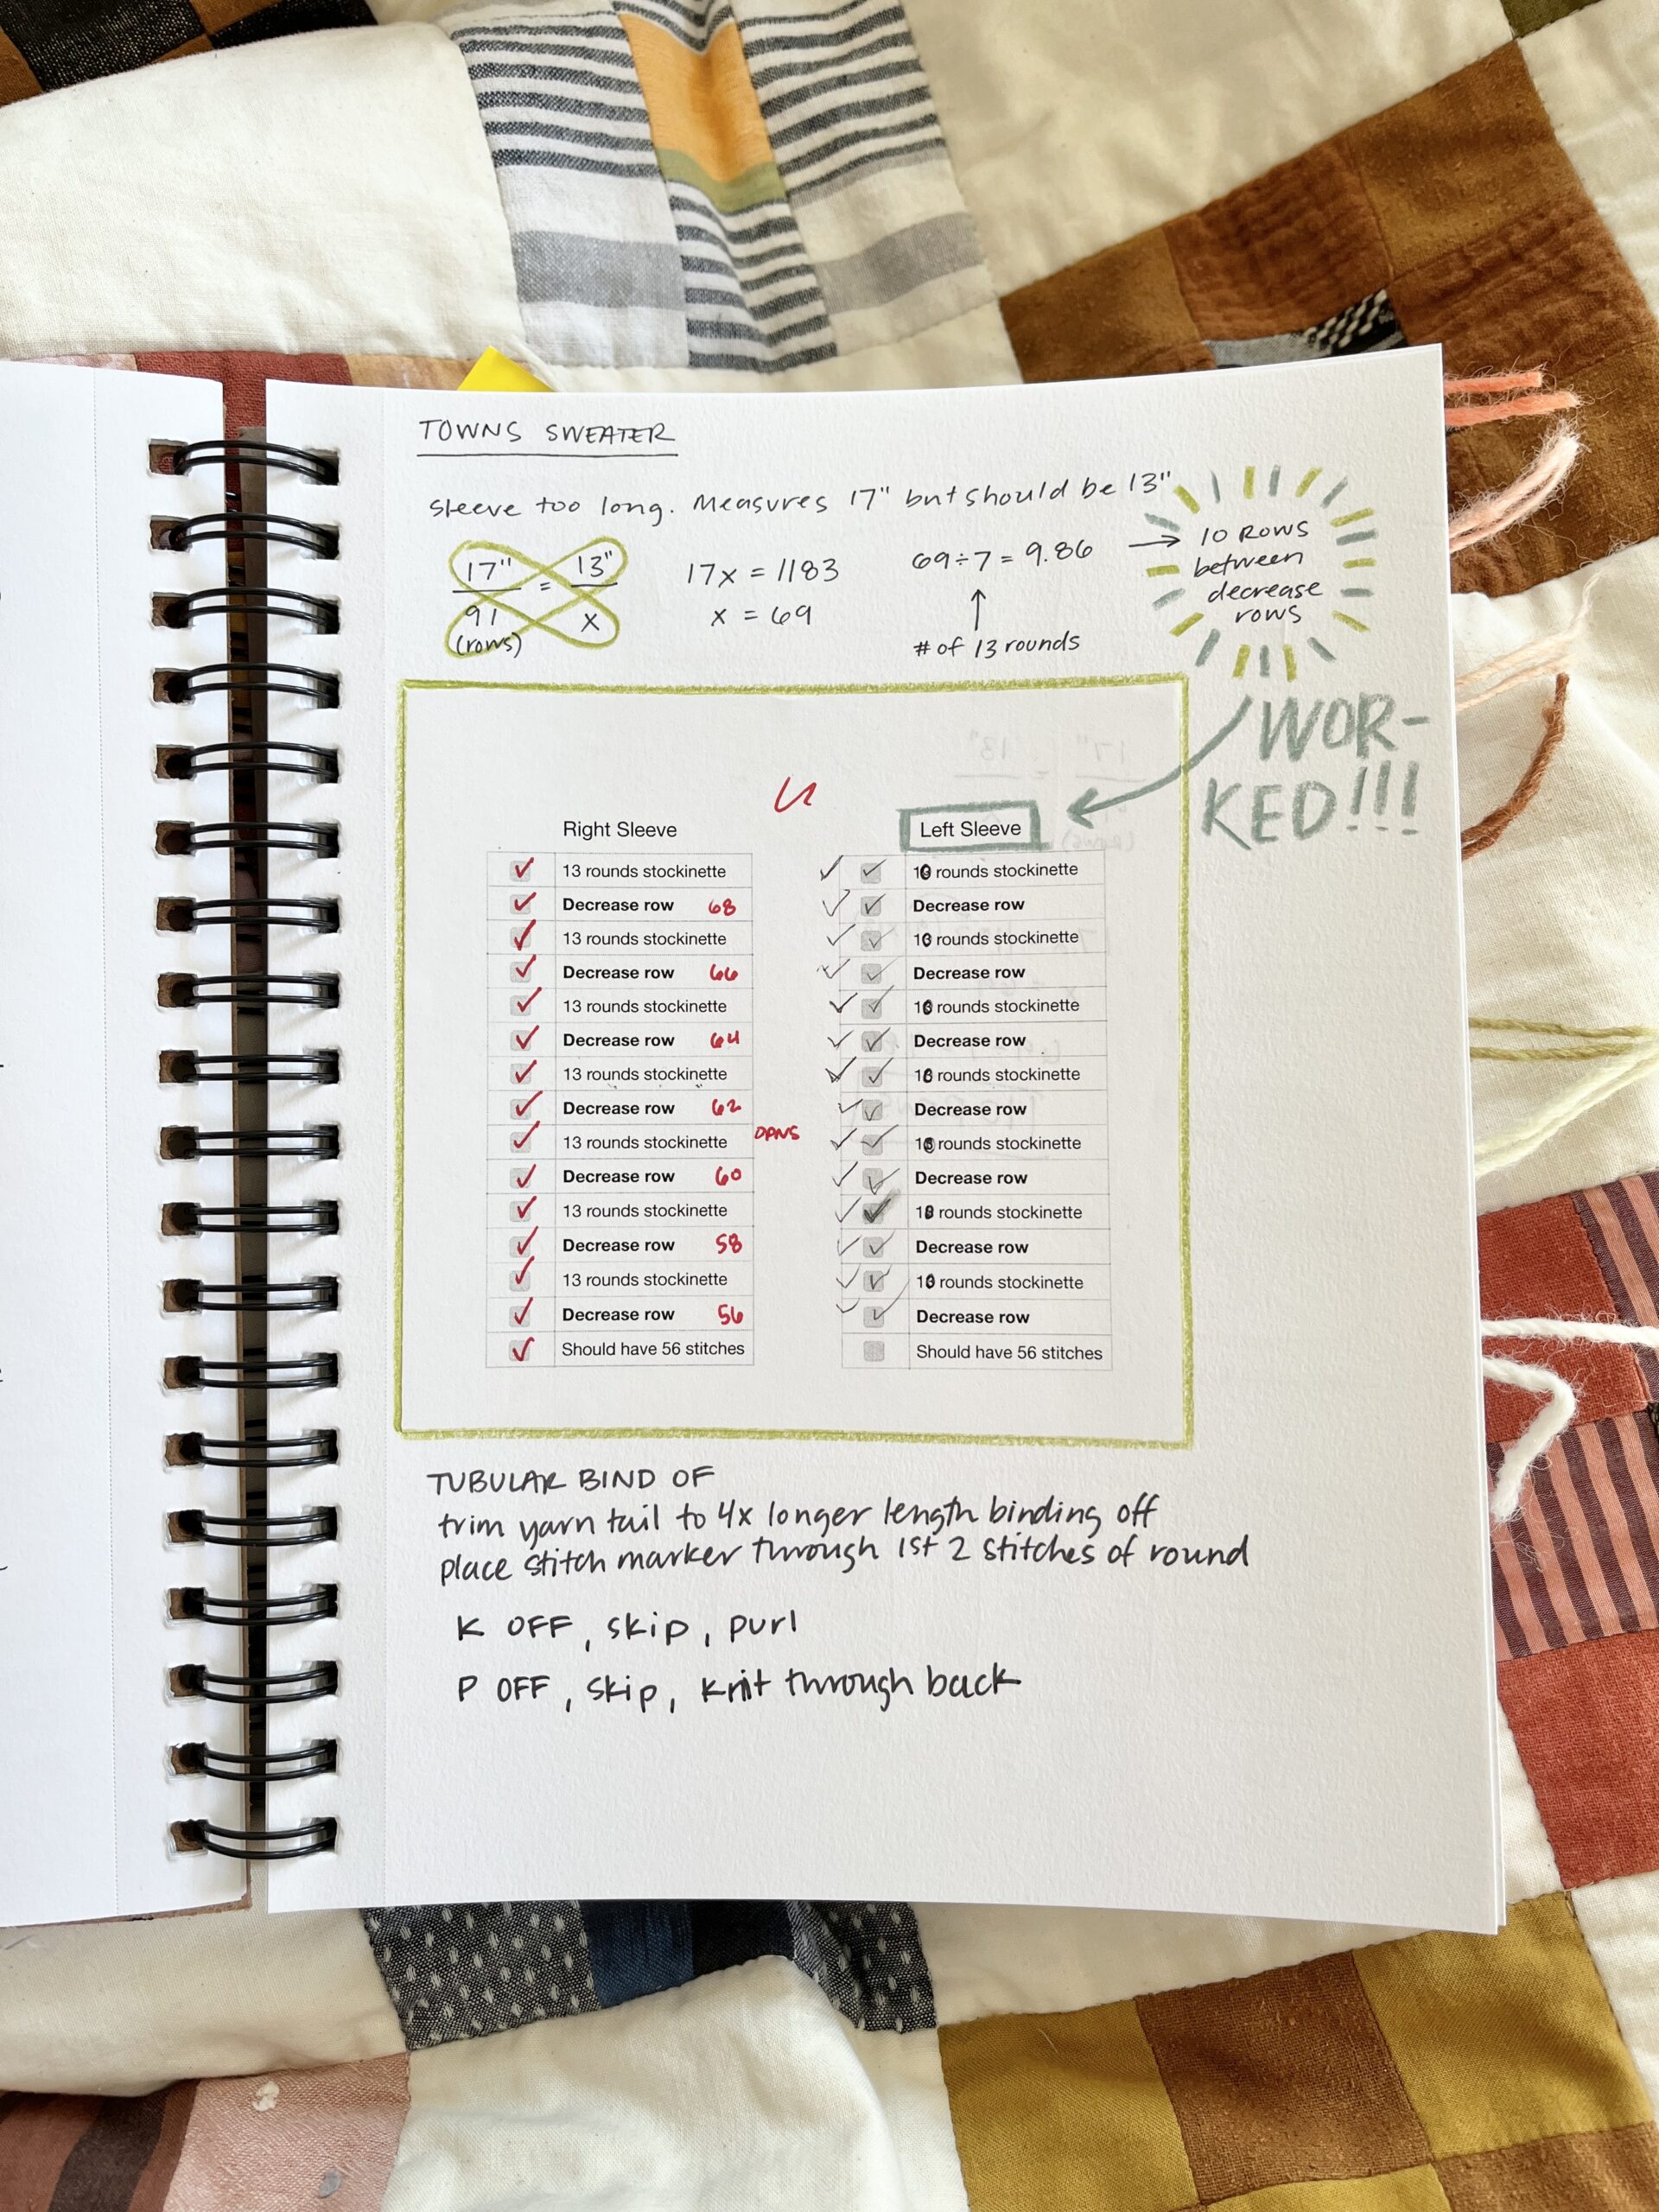 TOWNS SWEATER
Sleeve too long. Measures 17" but should be 13"
17" = 13"
91 x
(rows)
17x = 1183
x = 69
69÷7 = 9.86
# of 13 rounds
10 ROWS
between
decrease
rows
WOR-
KED!!!
Right Sleeve
13 rounds stockinette
Decrease row 68
13 rounds stockinette
Decrease row 66
13 rounds stockinette
Decrease row 64
13 rounds stockinette
Decrease row 62
13 rounds stockinette DPNS
Decrease row 60
13 rounds stockinette
Decrease row 58
13 rounds stockinette
Decrease row 56
Should have 56 stitches
Left Sleeve
10 rounds stockinette
Decrease row
10 rounds stockinette
Decrease row
10 rounds stockinette
Decrease row
10 rounds stockinette
Decrease row
10 rounds stockinette
Decrease row
10 rounds stockinette
Decrease row
10 rounds stockinette
Decrease row
Should have 56 stitches
TUBULAR BIND OF
trim yarn tail to 4x longer length binding off
place stitch marker through 1st 2 stitches of round
K OFF, skip, purl
P OFF, skip, knit through back